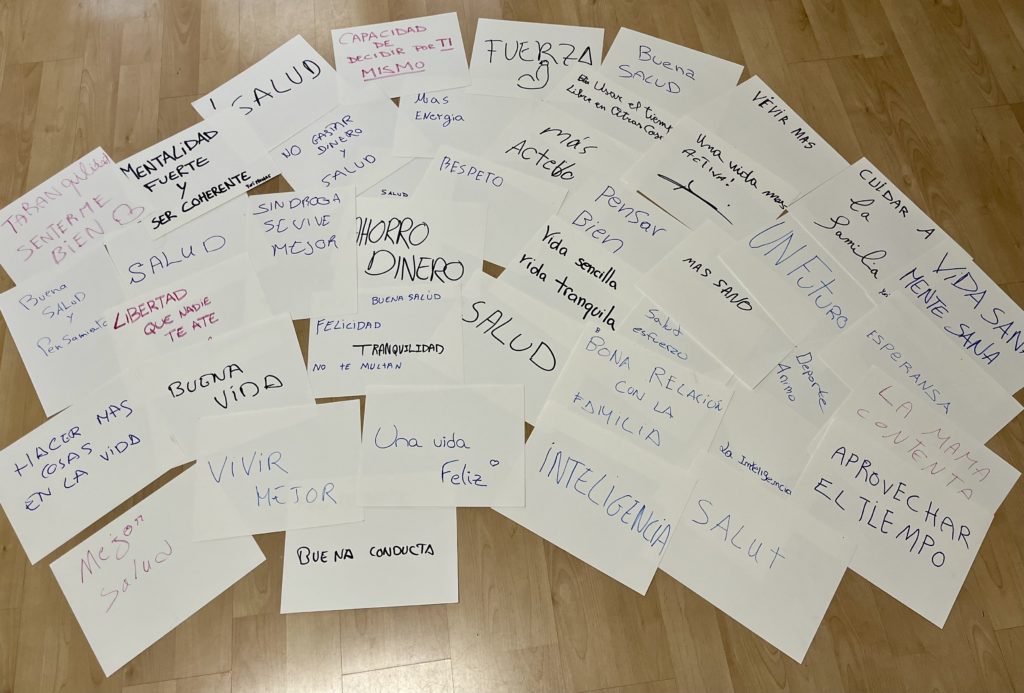 SALUD
CAPACIDAD
DE
DECIDIR POR TI
MISMO
FUERZA
Buena
SALUD
VEVIR MAS
MENTALIDAD
FUERTE
Y
SER COHERENTE
NO GASTAR
DINERO
Y
SALUD
Mas
Energia
más
Actebo
En Usar el tiempo
Libre en
Una vida mas
ActiVa!
CUIDAR
A
La
familia
TARANquilidad
SENTIERME
BIEN
SALUD
SIN DROGA
SE VIVE
MEJOR
SALUD
RESPETO
PenSar
Bien
UN FUTURO
VIDA SANA
MENTE SANA
Buena
SALUD
y
PenSamiento
LIBERTAD
QUE NADIE
TE ATE
AHORRO
DINERO
BUENA SALUD
Vida sencilla
vida tranquila
MAS SANO
ESPERANSA
FELICIDAD
TRANQUILIDAD
NO TE MULTAN
SALUD
Salut
esfuerzo
Deporte
Animo
LA MAMA
CONTENTA
BUENA
VIDA
BONA RELACIÓN
CON LA
FAMILIA
HACER MAS
COSAS
EN LA VIDA
VIVIR
MEJOR
Una vida
Feliz
INTELIGENCIA
La Inteligencia
SALUT
APROVECHAR
EL TIEMPO
Mejor
Salud
BUENA CONDUCTA